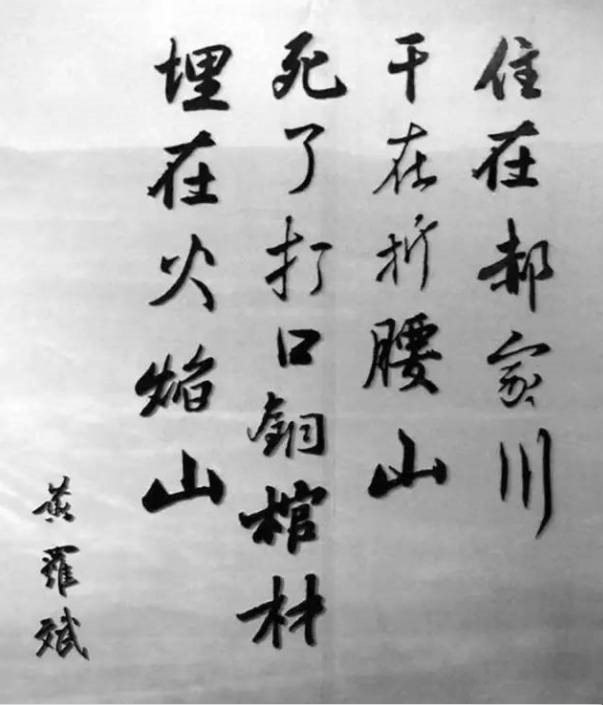 住在郝家川
干在折腰山
死了打口銅棺材
埋在火焰山
黃羅斌